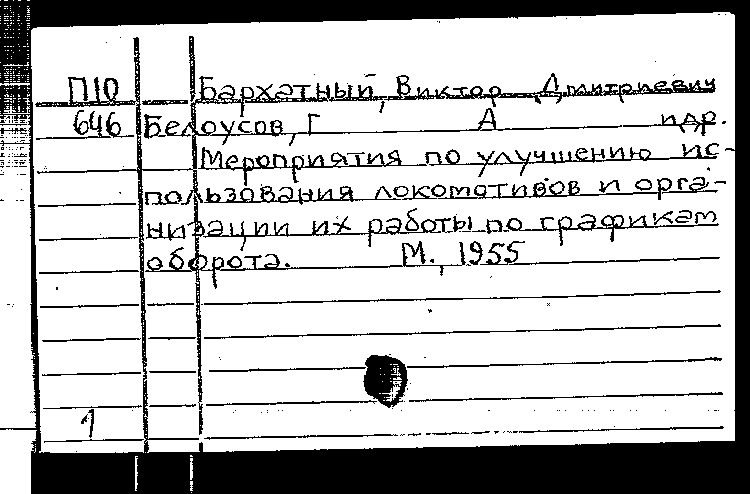 П10 Бархатный, Виктор Дмитриевич
646 Белоусов, Г А идр.
Мероприятия по улучшению ис-
пользования локомотивов и орга-
низации их работы по графикам
оборота. М., 1955
1